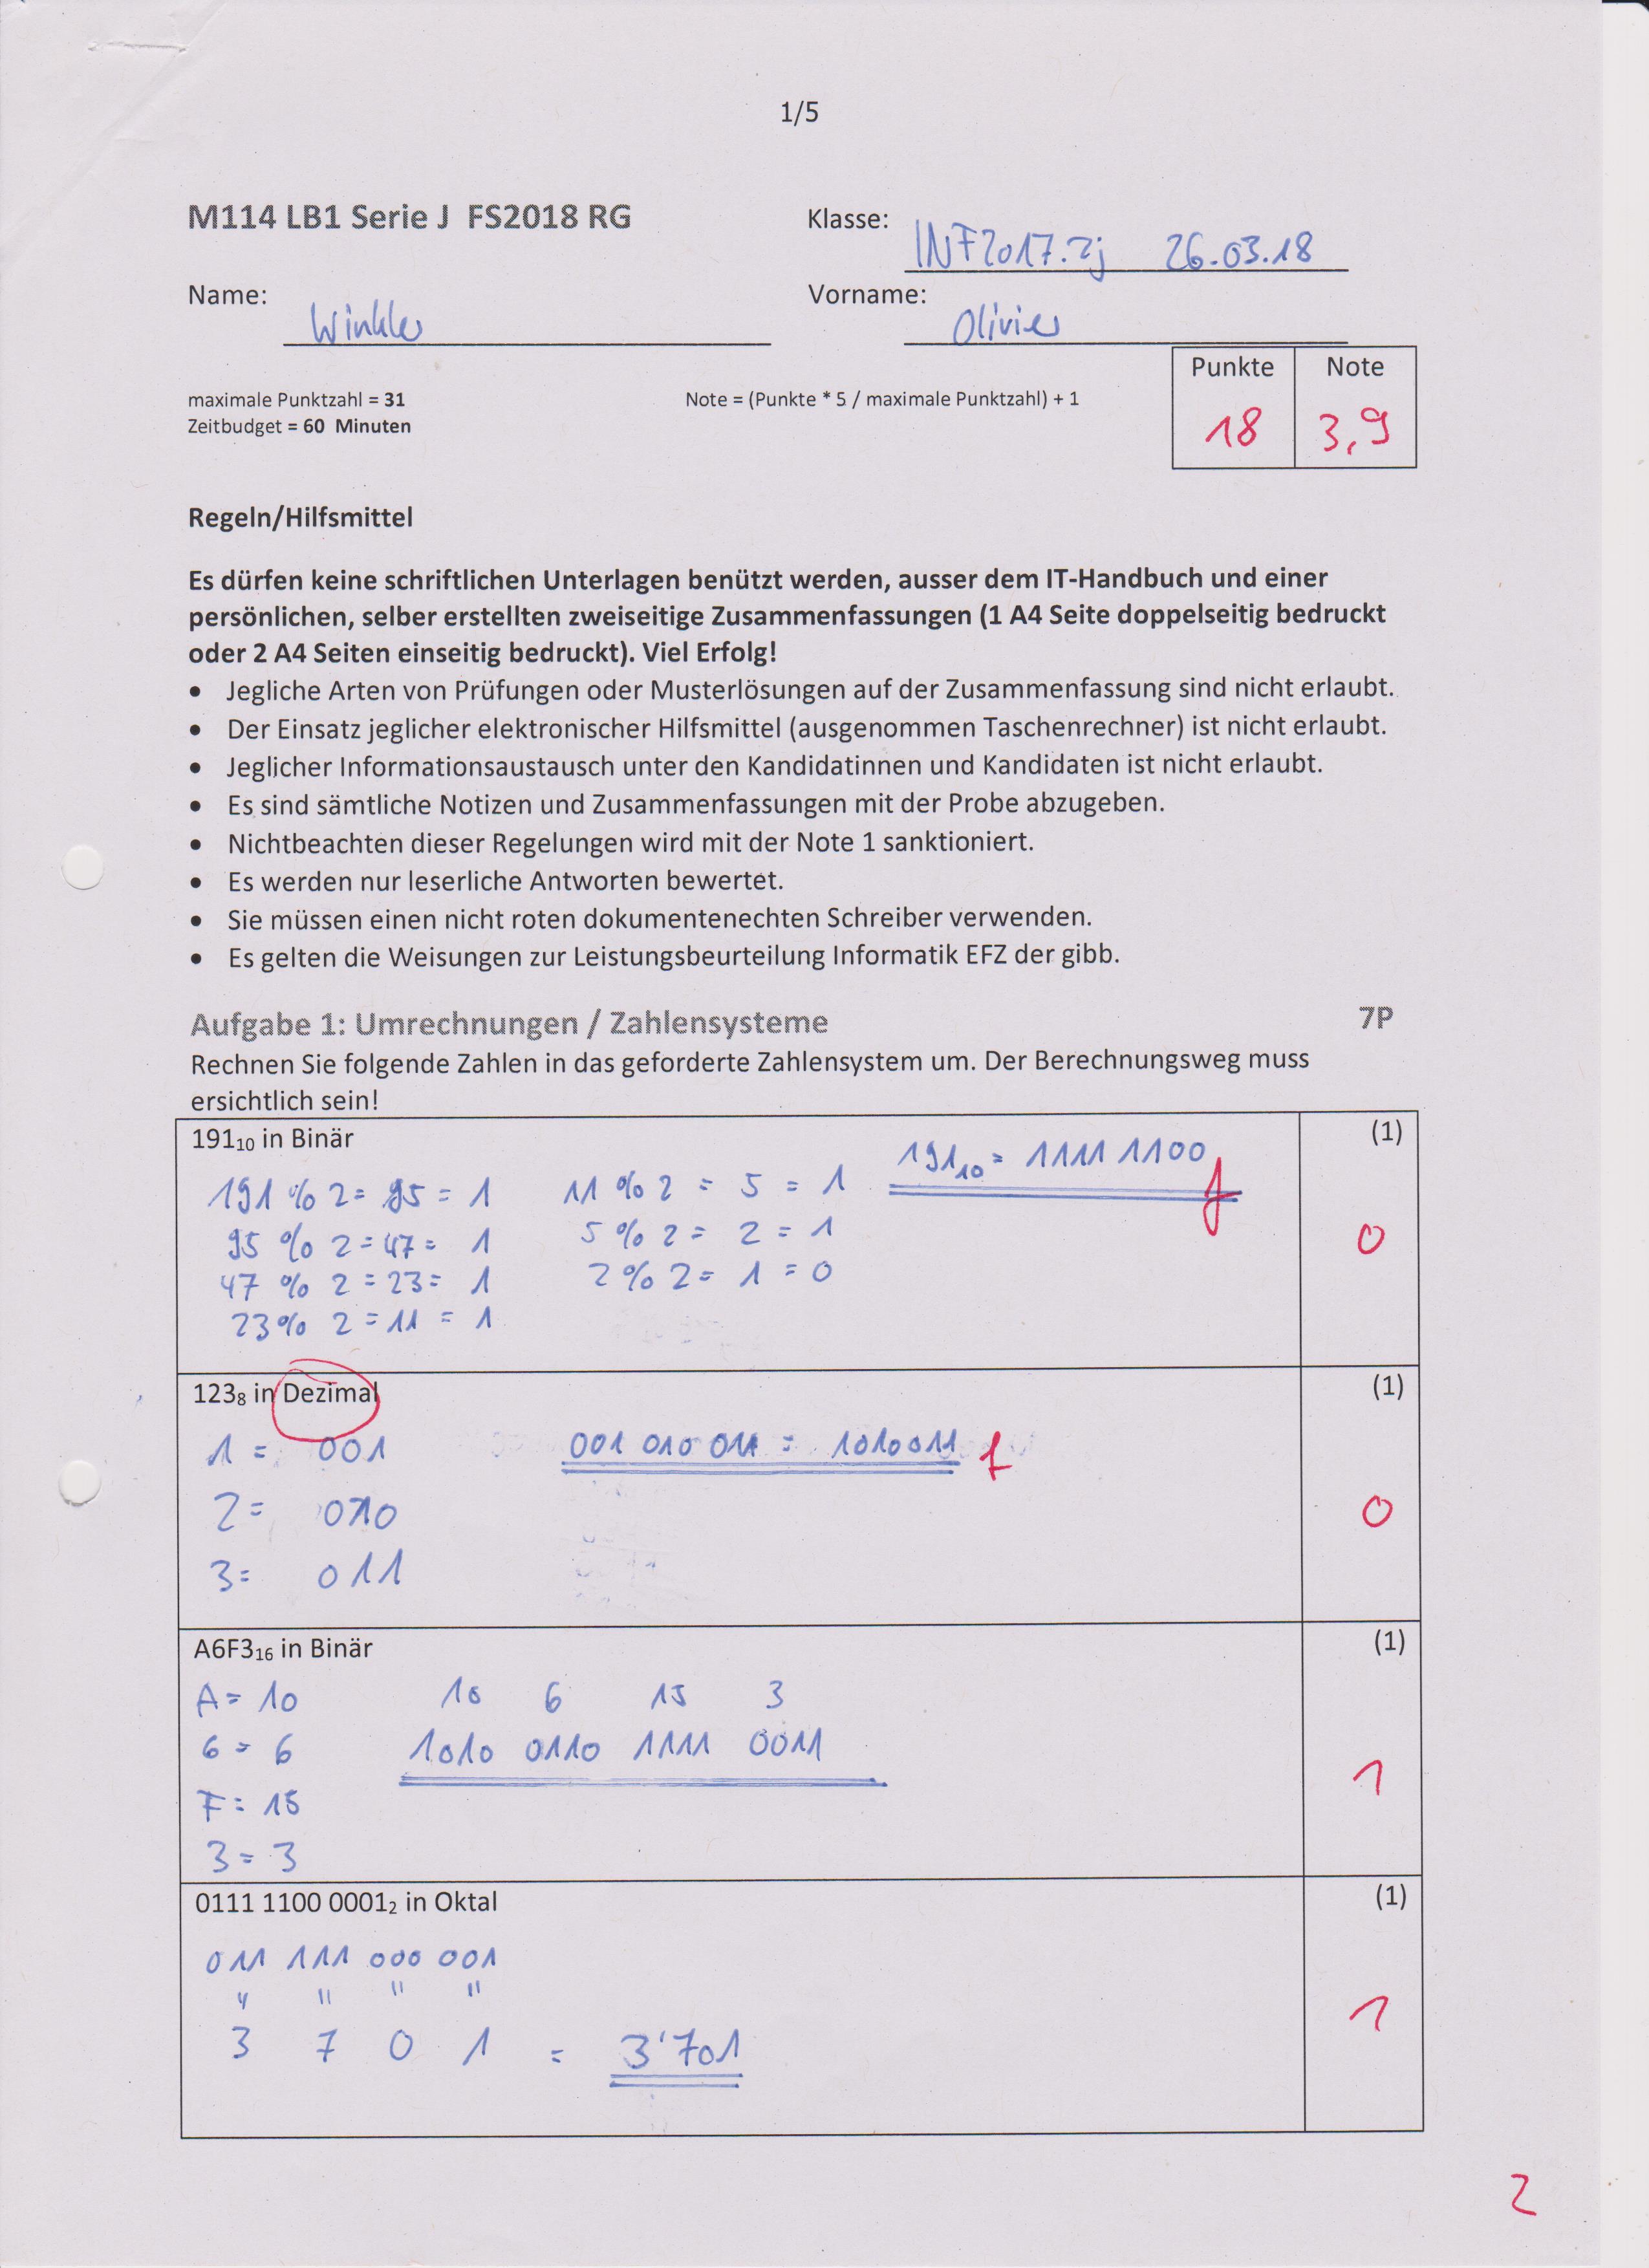 1/5
M114 LB1 Serie J FS2018 RG
Klasse: INF2017.2j 26.03.18
Name: Winkler
Vorname: Olivier
Punkte Note
maximale Punktzahl = 31 Note = (Punkte * 5 / maximale Punktzahl) + 1
Zeitbudget = 60 Minuten
18 3,9
Regeln/Hilfsmittel
Es dürfen keine schriftlichen Unterlagen benützt werden, ausser dem IT-Handbuch und einer
persönlichen, selber erstellten zweiseitige Zusammenfassungen (1 A4 Seite doppelseitig bedruckt
oder 2 A4 Seiten einseitig bedruckt). Viel Erfolg!
• Jegliche Arten von Prüfungen oder Musterlösungen auf der Zusammenfassung sind nicht erlaubt.
• Der Einsatz jeglicher elektronischer Hilfsmittel (ausgenommen Taschenrechner) ist nicht erlaubt.
• Jeglicher Informationsaustausch unter den Kandidatinnen und Kandidaten ist nicht erlaubt.
• Es sind sämtliche Notizen und Zusammenfassungen mit der Probe abzugeben.
• Nichtbeachten dieser Regelungen wird mit der Note 1 sanktioniert.
• Es werden nur leserliche Antworten bewertet.
• Sie müssen einen nicht roten dokumentenechten Schreiber verwenden.
• Es gelten die Weisungen zur Leistungsbeurteilung Informatik EFZ der gibb.
Aufgabe 1: Umrechnungen / Zahlensysteme 7P
Rechnen Sie folgende Zahlen in das geforderte Zahlensystem um. Der Berechnungsweg muss
ersichtlich sein!
191₁₀ in Binär (1)
191 % 2 = 95 = 1 11 % 2 = 5 = 1 191₁₀ = 1111 1100 f
95 % 2 = 47 = 1 5 % 2 = 2 = 1 0
47 % 2 = 23 = 1 2 % 2 = 1 = 0
23 % 2 = 11 = 1
123₈ in Dezimal (1)
1 = 001 001 010 011 = 1010011 f
2 = 010 0
3 = 011
A6F3₁₆ in Binär (1)
A = 10 10 6 15 3
6 = 6 1010 0110 1111 0011
F = 15 1
3 = 3
0111 1100 0001₂ in Oktal (1)
011 111 000 001
" " " "
3 7 0 1 = 3'701 1
2